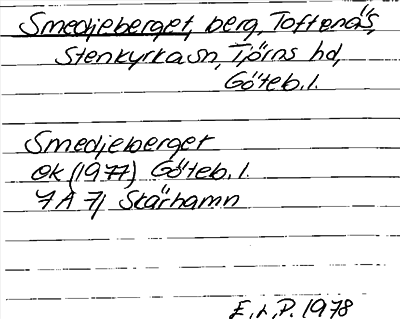 Smedjeberget, berg, Toftenäs,
Stenkyrka sn, Tjörns hd,
Göteb. l.
Smedjeberget
Ek (1977) Göteb. l.
7A 7j Skärhamn
E.L.P. 1978